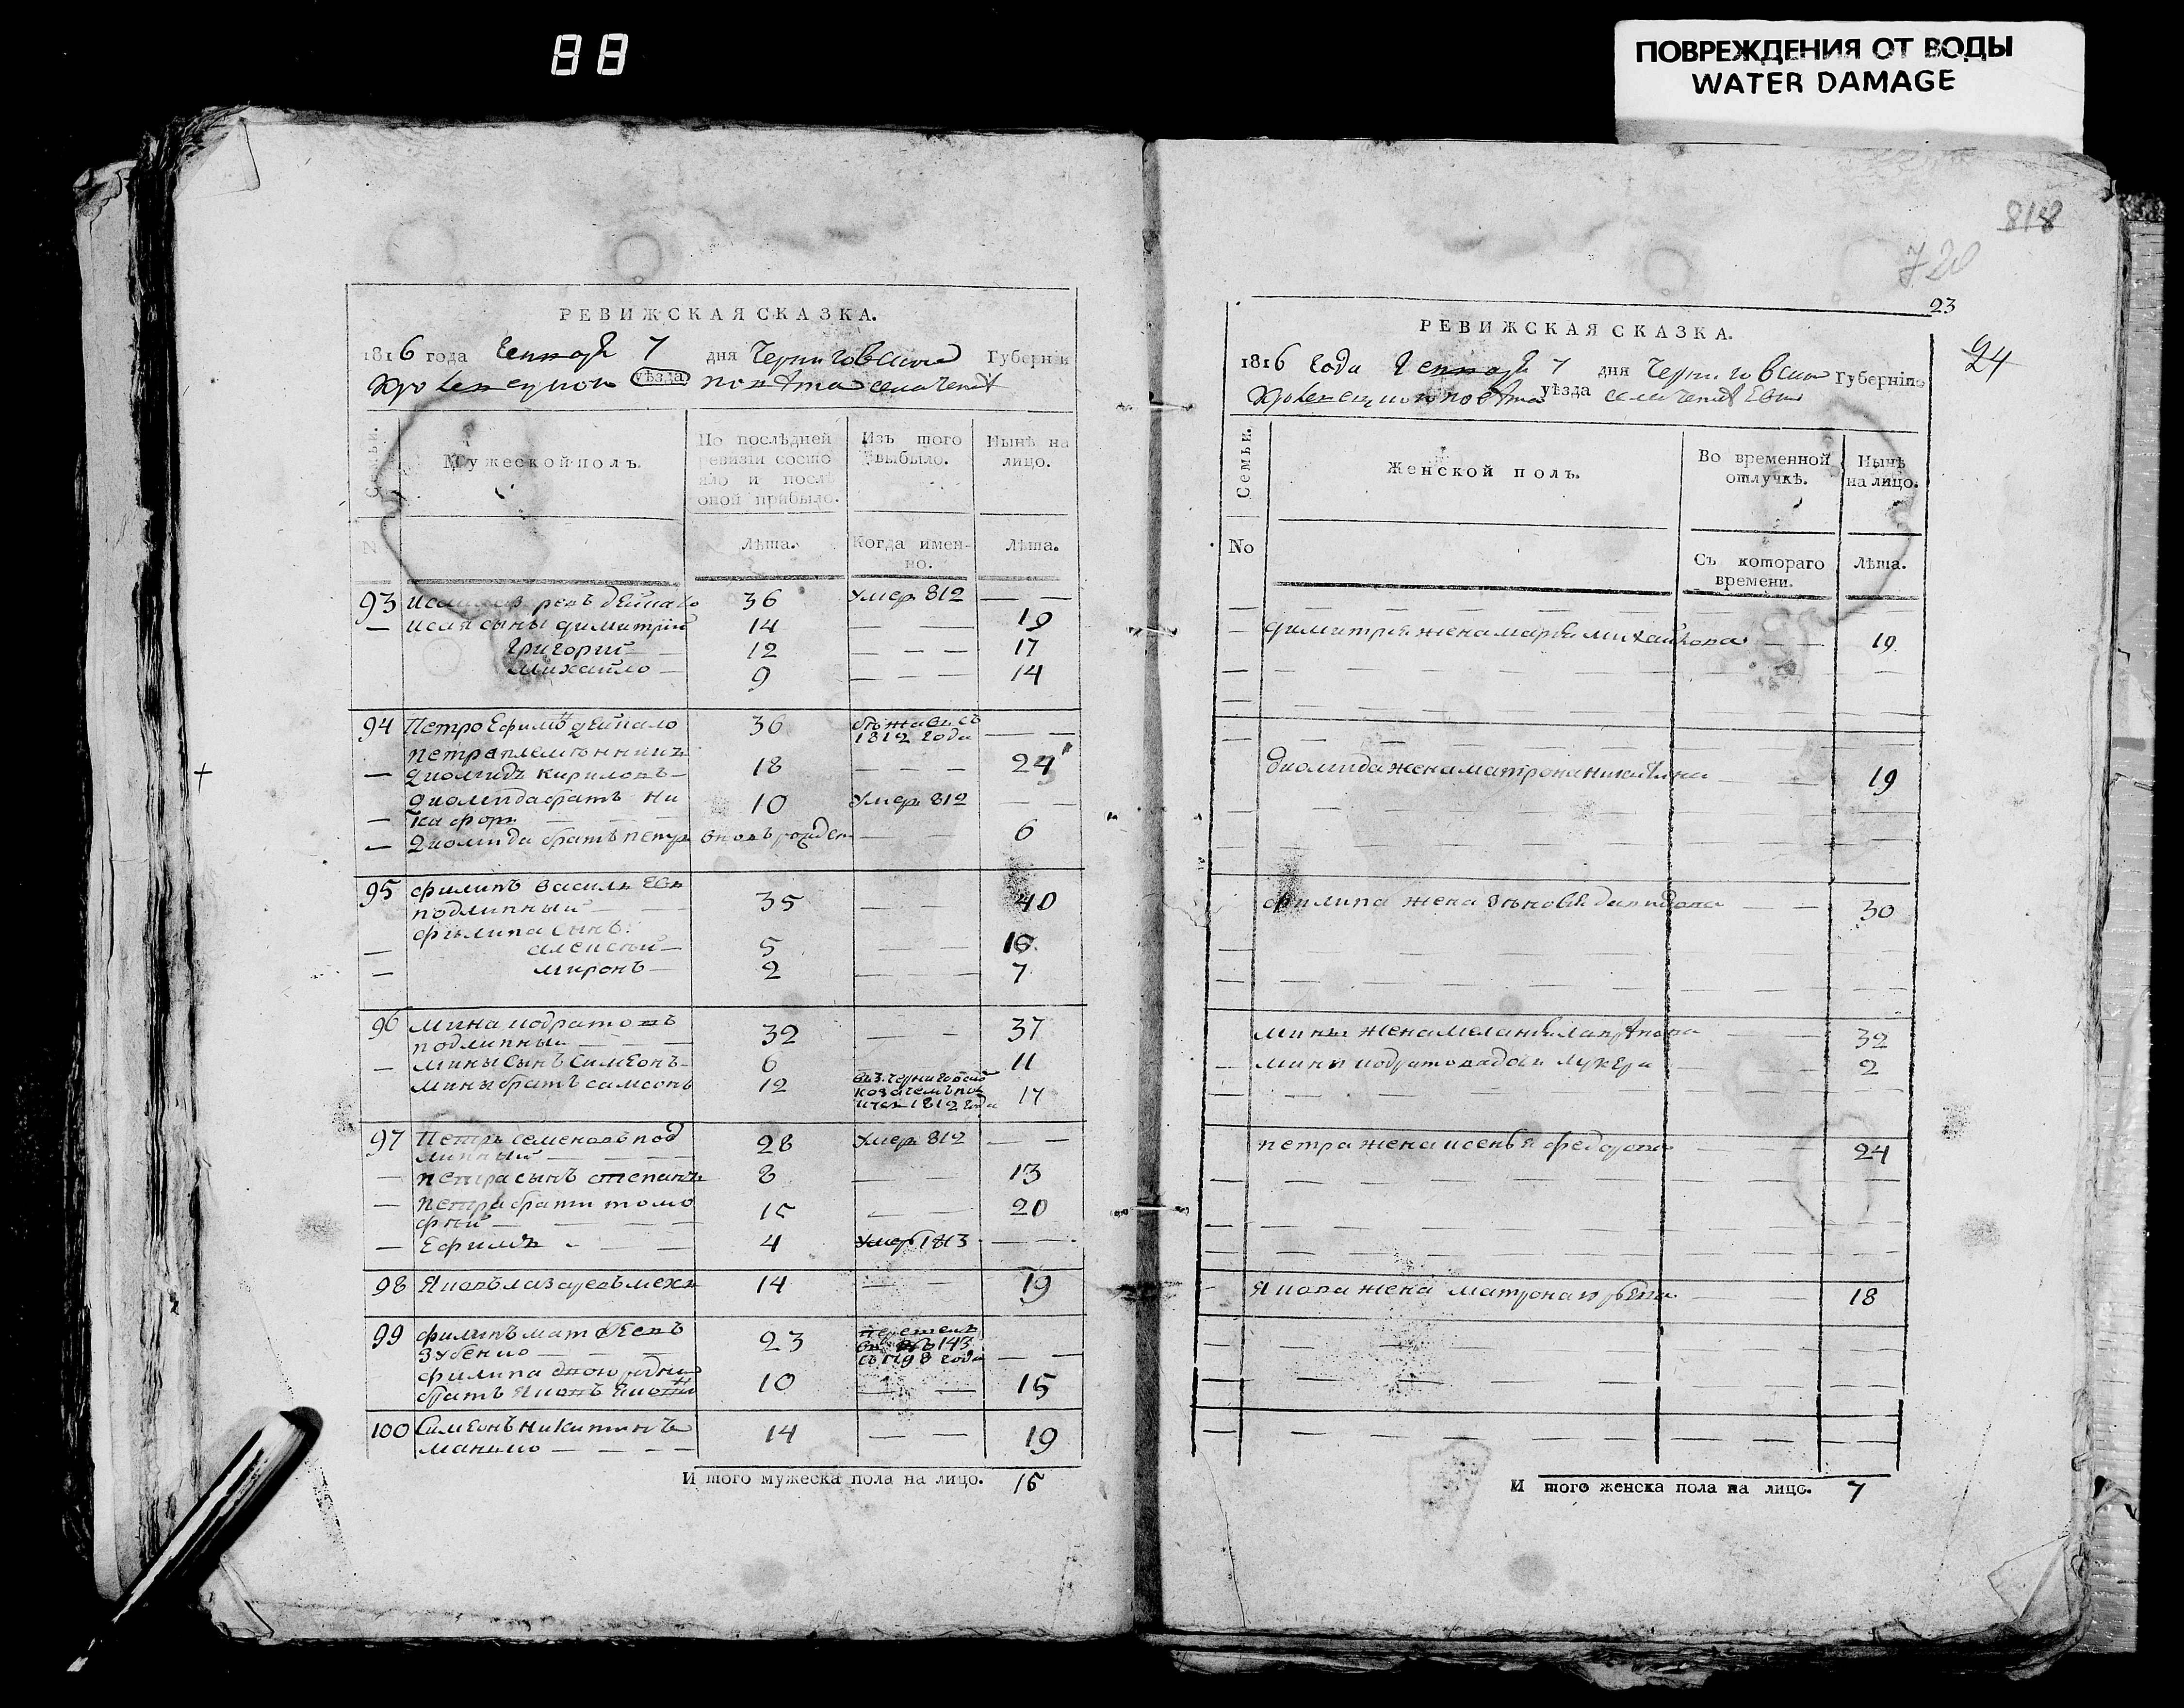 88
ПОВРЕЖДЕНИЯ ОТ ВОДЫ
WATER DAMAGE
818
720
РЕВИЖСКАЯ СКАЗКА.
1816 года Генваря 7 дня Черниговской Губерніи
уѣзда повѣта
Семьи.
Мужеской полъ.
По послѣдней
ревизіи состо
яло и послѣ
оной прибыло.
Изъ того
выбыло.
Нынѣ на
лицо.
N
Лѣта.
Когда имен-
но.
Лѣта.
93 36 умер. 812 — —
— исая сыны димитрій 14 — — 19
григорій 12 — — — 17
михайло — 9 — — — 14
94 Петро Ефимов дейнеко 36 бѣжавъ съ — —
1812 года
петра племѣнникъ
— диомидъ кириловъ — 18 — — — 24
диомида братъ ни 10 умер. 812 — —
— кафоръ
— диомида братъ петръ вновь рожден — — 6
95 филипъ василиевъ
подлипный 35 — — 40
филипа сынъ:
— алексѣй — 5 — — 10
— миронъ — 2 — — 7
96 мина кодратовъ 32 — — 37
подлипный
— мины сынъ симеонъ 6 — — 11
мины братъ самсонъ 12 17
1812 года
97 Петръ семеновъ под 28 умер. 812 — —
липный
— петра сынъ степанъ 8 — — 13
— петра братъ тимо 15 — — 20
фѣй
— Ефимъ 4 умер 1813 — —
98 Яковъ лазаревъ 14 — — 19
99 филипъ матвѣевъ 23 перешелъ
зубенко 143
съ 1798 года — —
филипа двоюродный
братъ яковъ 10 — — 15
100 Симеонъ никитинъ 14 — — 19
манико
И того мужеска пола на лицо. 15
23
24
РЕВИЖСКАЯ СКАЗКА.
1816 года Генваря 7 дня Черниговской Губерніи
повѣта уѣзда
Семьи.
Женской полъ.
Во временной
отлучкѣ.
Нынѣ
на лицо.
No
Съ котораго
времени.
Лѣта.
— димитрія жена марья михайлова — — 19
диомида жена матрона никитина — — 19
филипа жена зѣновія давидова — — 30
мины жена меланія — — 32
мины кодратова дочь лукеря — — 2
петра жена ксенья федорова — — — 24
Якова жена матрона — — 18
И того женска пола на лицо. 7